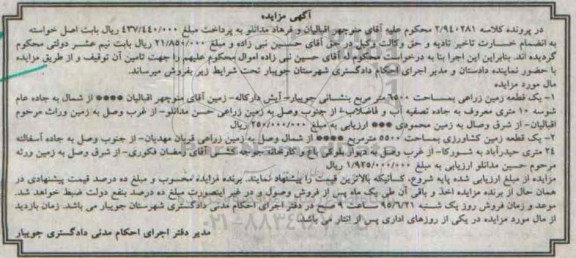 آگهی مزایده
در پرونده کلاسه ۲/۹۴۰۲۸۱ محکوم علیه آقای منوچهر اقبالیان و فرهاد مدانلو به پرداخت مبلغ ۴۳۷/۴۴۰/۰۰۰ ریال بابت اصل خواسته
به انضمام خسارت تاخیر تادیه و حق وکالت وکیل در حق آقای حسین نبی زاده و مبلغ ۲۱/۸۵۰/۰۰۰ ریال بابت نیم عشر دولتی محکوم
گردیده اند. بنابراین این اجرا بنا به درخواست محکوم له آقای حسین نبی زاده اموال محکوم علیهم را جهت تامین آن توقیف و از طریق مزایده
با حضور نماینده دادستان و مدیر اجرای احکام دادگستری شهرستان جویبار تحت شرایط زیر بفروش میرساند.
مال مورد مزایده
۱- یک قطعه زمین زراعی بمساحت ۶۵۰۰ متر مربع بنشانی جویبار- آیش دارکاله- زمین آقای منوچهر اقبالیان **** از شمال به جاده عام
شوسه ۱۰ متری معروف به جاده تصفیه آب و فاضلاب- از جنوب وصل به زمین زراعی حسن مدانلو- از غرب وصل به زمین وراث مرحوم
اقبالیان- از شرق وصال به زمین محمودی *** ارزیابی به مبلغ ۲۵۰/۰۰۰/۰۰۰ ریال
۲- یک قطعه زمین کشاورزی بمساحت ۵۵۰۰ مترمربع **** از شمال وصل به زمین زراعی قربان مهدیان- از جنوب وصل به جاده آسفالته
۲۴ متری حیدرآباد به شورکا- از غرب وصل به دیوار بلوکی باغ و کارخانه جوجه کشی آقای رمضان فکوری- از شرق وصل به زمین ورثه
مرحوم حسین مدانلو ارزیابی به مبلغ ۱/۹۲۵/۰۰۰/۰۰۰ ریال
مزایده از مبلغ ارزیابی شده پایه شروع، کسانیکه بالاترین قیمت را پیشنهاد نمایند. برنده مزایده محسوب و مبلغ ده درصد قیمت پیشنهادی در
همان حال از برنده مزایده اخذ و باقی آن طی یک ماه پس از فروش وصول و در غیر اینصورت مبلغ ده درصد بنفع دولت ضبط خواهد شد.
موعد و زمان فروش روز یک شنبه ۹۵/۶/۲۱ ساعت ۹ صبح در دفتر اجرای احکام مدنی دادگستری شهرستان جویبار می باشد. زمان بازدید
از مال مورد مزایده در یکی از روزهای اداری پس از انتار می باشد.
مدیر دفتر اجرای احکام مدنی دادگستری جویبار